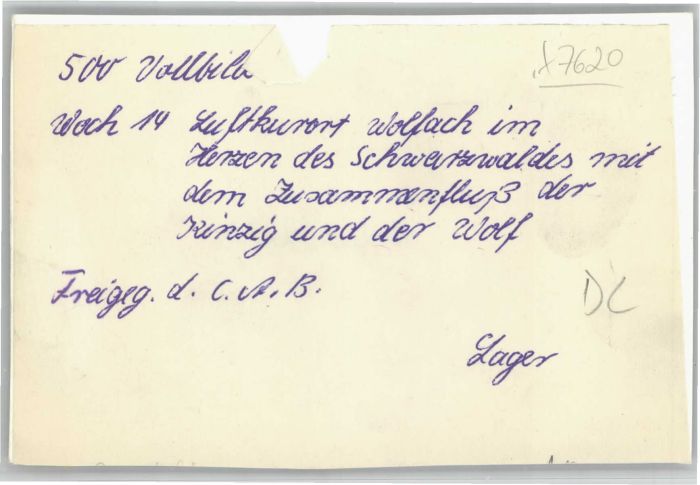 500 Vollbild
X7620
Woch 14 Luftkurort Wolfach im
Herzen des Schwarzwaldes mit
dem Zusammenfluß der
Kinzig und der Wolf
Freigeg. d. C. A. B.
DC
Lager